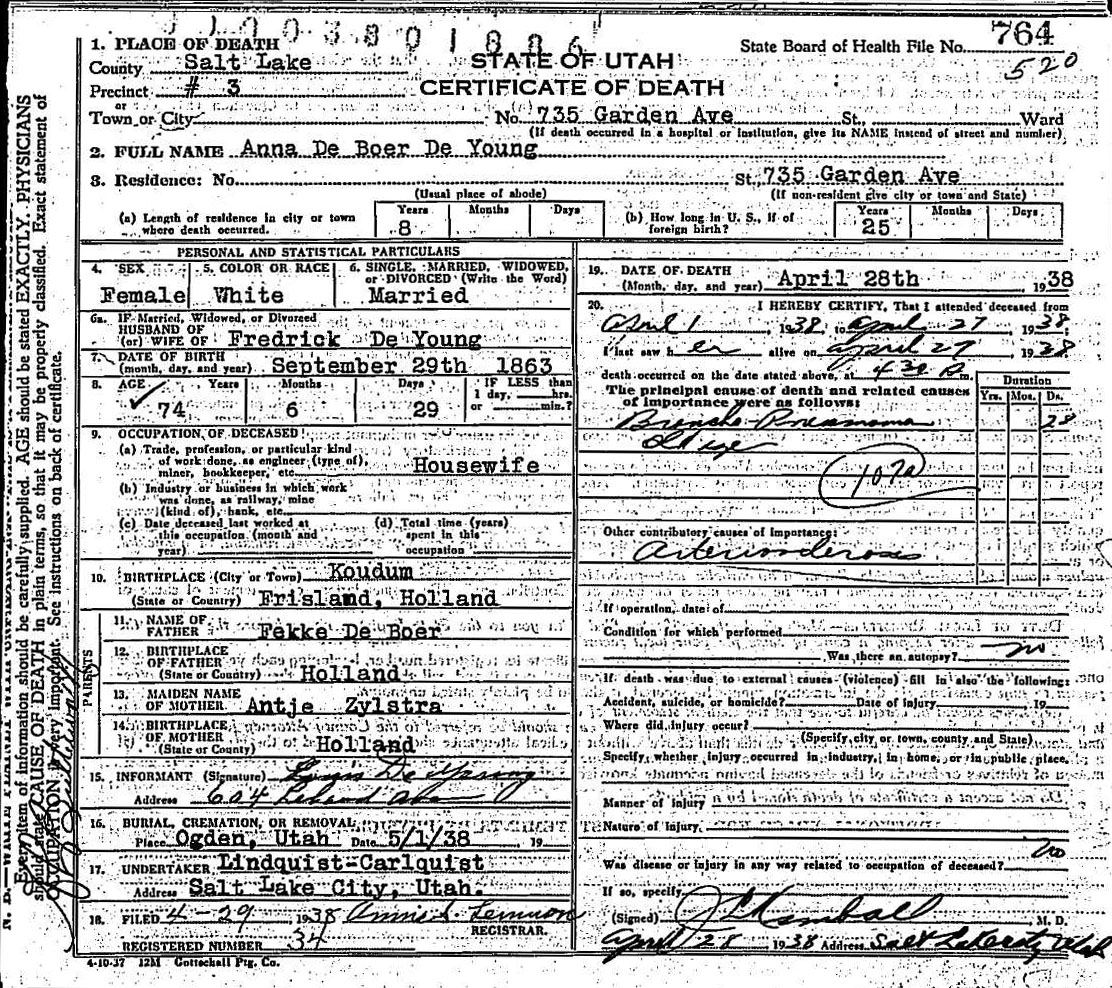 1. PLACE OF DEATH
County Salt Lake
Precinct # 3
or
Town or City
STATE OF UTAH
CERTIFICATE OF DEATH
State Board of Health File No. 764
520
No. 735 Garden Ave St., Ward
(If death occurred in a hospital or institution, give its NAME instead of street and number)
2. FULL NAME Anna De Boer De Young
3. Residence: No. St. 735 Garden Ave
(Usual place of abode) (If non-resident give city or town and State)
(a) Length of residence in city or town where death occurred. Years 8 Months Days
(b) How long in U. S., if of foreign birth? Years 25 Months Days
PERSONAL AND STATISTICAL PARTICULARS
4. SEX Female
5. COLOR OR RACE White
6. SINGLE, MARRIED, WIDOWED, or DIVORCED (Write the Word) Married
6a. IF Married, Widowed, or Divorced
HUSBAND OF
(or) WIFE OF Fredrick De Young
7. DATE OF BIRTH
(month, day, and year) September 29th 1863
8. AGE Years 74 Months 6 Days 29 IF LESS than 1 day, hrs. or min.?
9. OCCUPATION OF DECEASED
(a) Trade, profession, or particular kind of work done, as engineer (type of), miner, bookkeeper, etc. Housewife
(b) Industry or business in which work was done, as railway, mine (kind of), bank, etc.
(c) Date deceased last worked at this occupation (month and year)
(d) Total time (years) spent in this occupation
10. BIRTHPLACE (City or Town) Koudum
(State or Country) Frisland, Holland
PARENTS
11. NAME OF FATHER Fekke De Boer
12. BIRTHPLACE OF FATHER (State or Country) Holland
13. MAIDEN NAME OF MOTHER Antje Zylstra
14. BIRTHPLACE OF MOTHER (State or County) Holland
15. INFORMANT (Signature) De Young
Address 604 Ave
16. BURIAL, CREMATION, OR REMOVAL
Place Ogden, Utah Date 5/1/38 19
17. UNDERTAKER Lindquist-Carlquist
Address Salt Lake City, Utah.
18. FILED 4-29, 1938 Annie S. Lemmon
REGISTRAR.
REGISTERED NUMBER 34
4-10-37 12M Gottschall Ptg. Co.
19. DATE OF DEATH
(Month, day, and year) April 28th 1938
20. I HEREBY CERTIFY, That I attended deceased from
April 1, 1938, to April 27, 1938;
I last saw her alive on April 27 1938
death occurred on the date stated above, at 4 30 P m.
The principal cause of death and related causes of importance were as follows:
Duration
Yrs. Mos. Ds.
Broncho-Pneumonia 28
Old age
107a
Other contributory causes of importance:
Arteriosclerosis
If operation, date of
Condition for which performed
Was there an autopsy? no
If death was due to external causes (violence) fill in also the following:
Accident, suicide, or homicide? Date of injury 19
Where did injury occur?
(Specify city or town, county and State)
Specify whether injury occurred in industry, in home, or in public place.
Manner of injury
Nature of injury
Was disease or injury in any way related to occupation of deceased? no
If so, specify
(Signed) Kimball M. D.
April 28 1938 Address Salt Lake City Utah
Every item of information should be carefully supplied. AGE should be stated EXACTLY. PHYSICIANS
should state CAUSE OF DEATH in plain terms, so that it may be properly classified. Exact statement of
OCCUPATION is very important. See instructions on back of certificate.